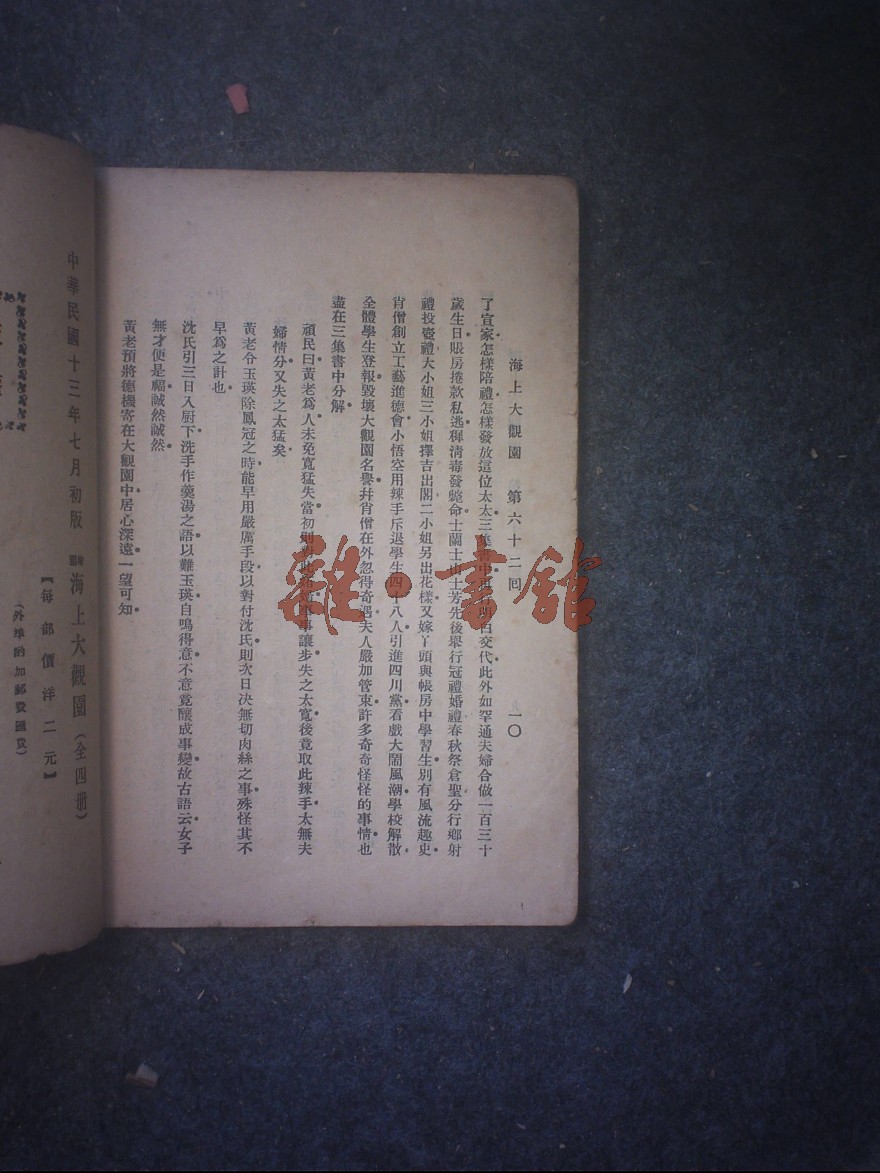 海上大觀園 第六十二回 一〇
了宣家怎樣陪禮怎樣發放這位太太三集書中再行明白交代此外如罕通夫婦合做一百三十
歲生日賬房捲款私逃穉清毒發斃命士蘭士山士芳先後舉行冠禮婚禮春秋祭倉聖分行鄉射
禮投壺禮大小姐三小姐擇吉出閣二小姐另出花樣又嫁丫頭與帳房中學習生別有風流趣史
肖僧創立工藝進德會小悟空用辣手斥退學生四十八人引進四川黨看戲大鬧風潮學校解散
全體學生登報毀壞大觀園名譽幷肖僧在外忽得奇遇夫人嚴加管束許多奇奇怪怪的事情也
盡在三集書中分解
頑民曰黃老爲人未免寬猛失當初則事讓步失之太寬後竟取此辣手太無夫
婦情分又失之太猛矣
黃老令玉瑛除鳳冠之時能早用嚴厲手段以對付沈氏則次日決無切肉絲之事殊怪其不
早爲之計也
沈氏引三日入厨下洗手作羹湯之語以難玉瑛自鳴得意不意竟釀成事變故古語云女子
無才便是福誠然誠然
黃老預將德機寄在大觀園中居心深遠一望可知
中華民國十三年七月初版
海上大觀園（全四册）
【每部價洋二元】
（外埠酌加郵費匯費）
雜·書館